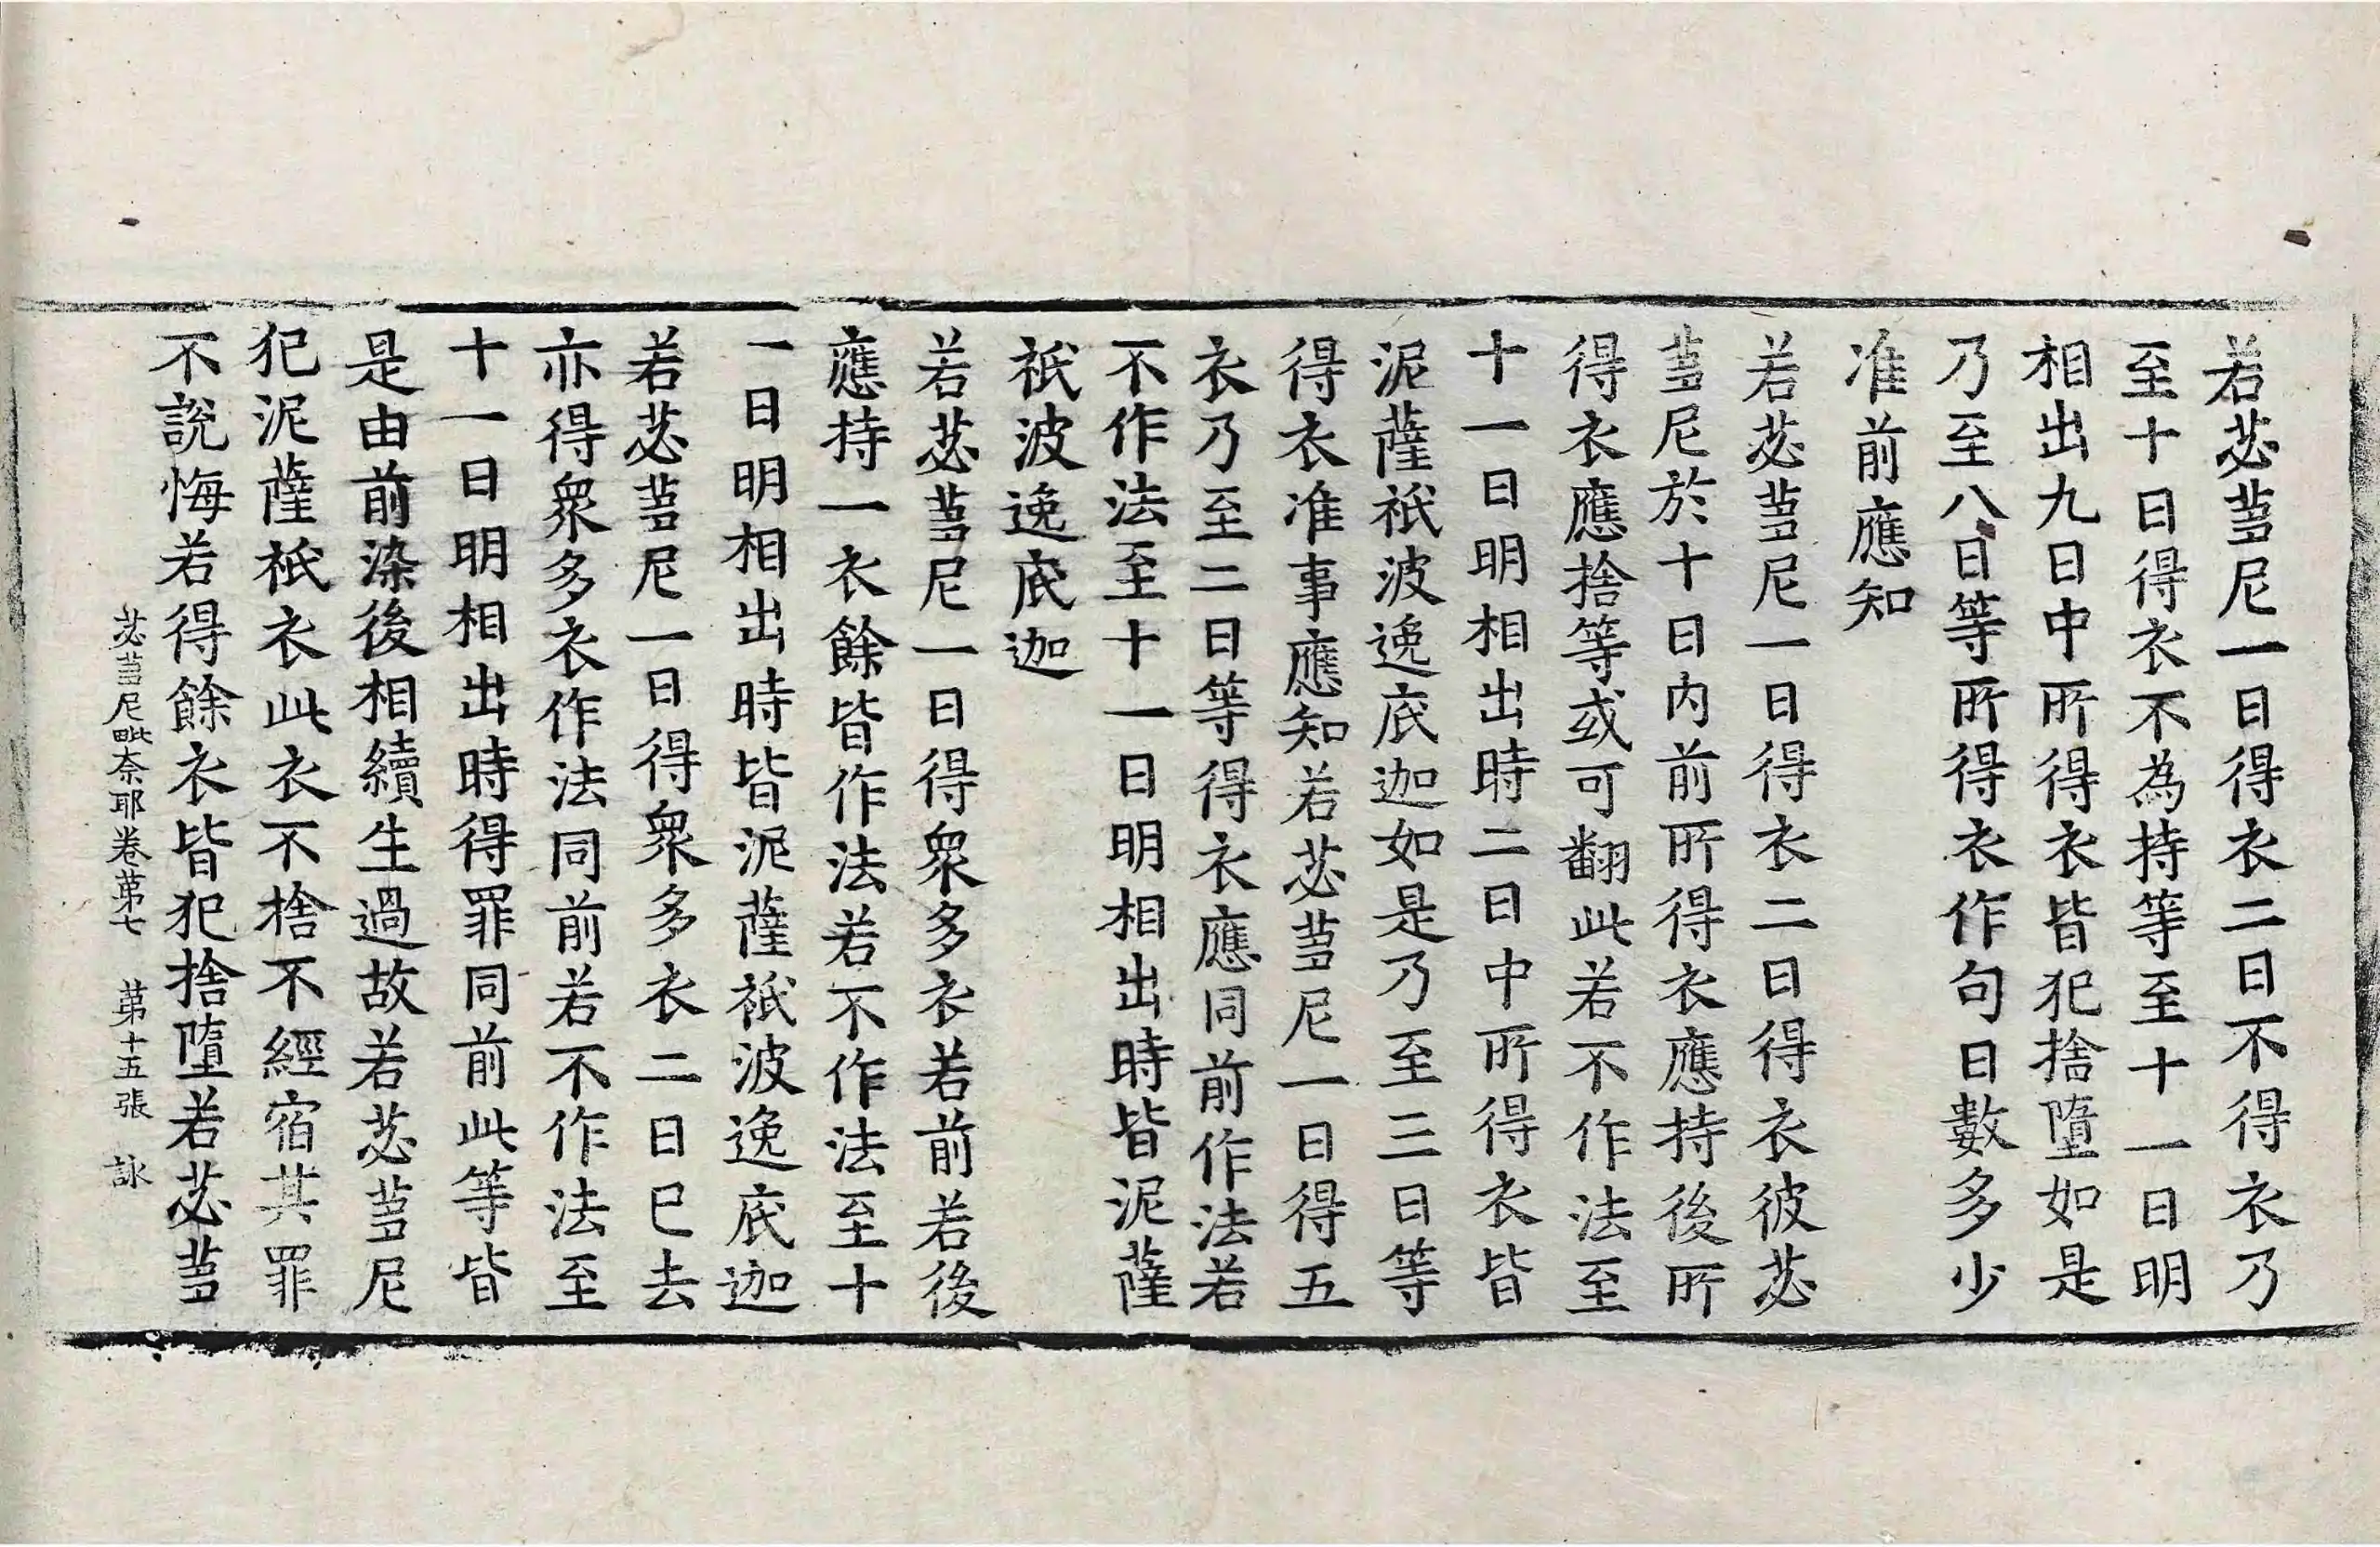 若苾蒭尼一日得衣二日不得衣乃
至十日得衣不為持等至十一日明
相出九日中所得衣皆犯捨墮如是
乃至八日等所得衣作句日數多少
准前應知
若苾蒭尼一日得衣二日得衣彼苾
蒭尼於十日內前所得衣應持後所
得衣應捨等或可翻此若不作法至
十一日明相出時二日中所得衣皆
泥薩祇波逸底迦如是乃至三日等
得衣准事應知若苾蒭尼一日得五
衣乃至二日等得衣應同前作法若
不作法至十一日明相出時皆泥薩
祇波逸底迦
若苾蒭尼一日得衆多衣若前若後
應持一衣餘皆作法若不作法至十
一日明相出時皆泥薩祇波逸底迦
若苾蒭尼一日得衆多衣二日已去
亦得衆多衣作法同前若不作法至
十一日明相出時得罪同前此等皆
是由前染後相續生過故若苾蒭尼
犯泥薩祇衣此衣不捨不經宿其罪
不說悔若得餘衣皆犯捨墮若苾蒭
苾蒭尼毗奈耶卷第七 第十五張 詠